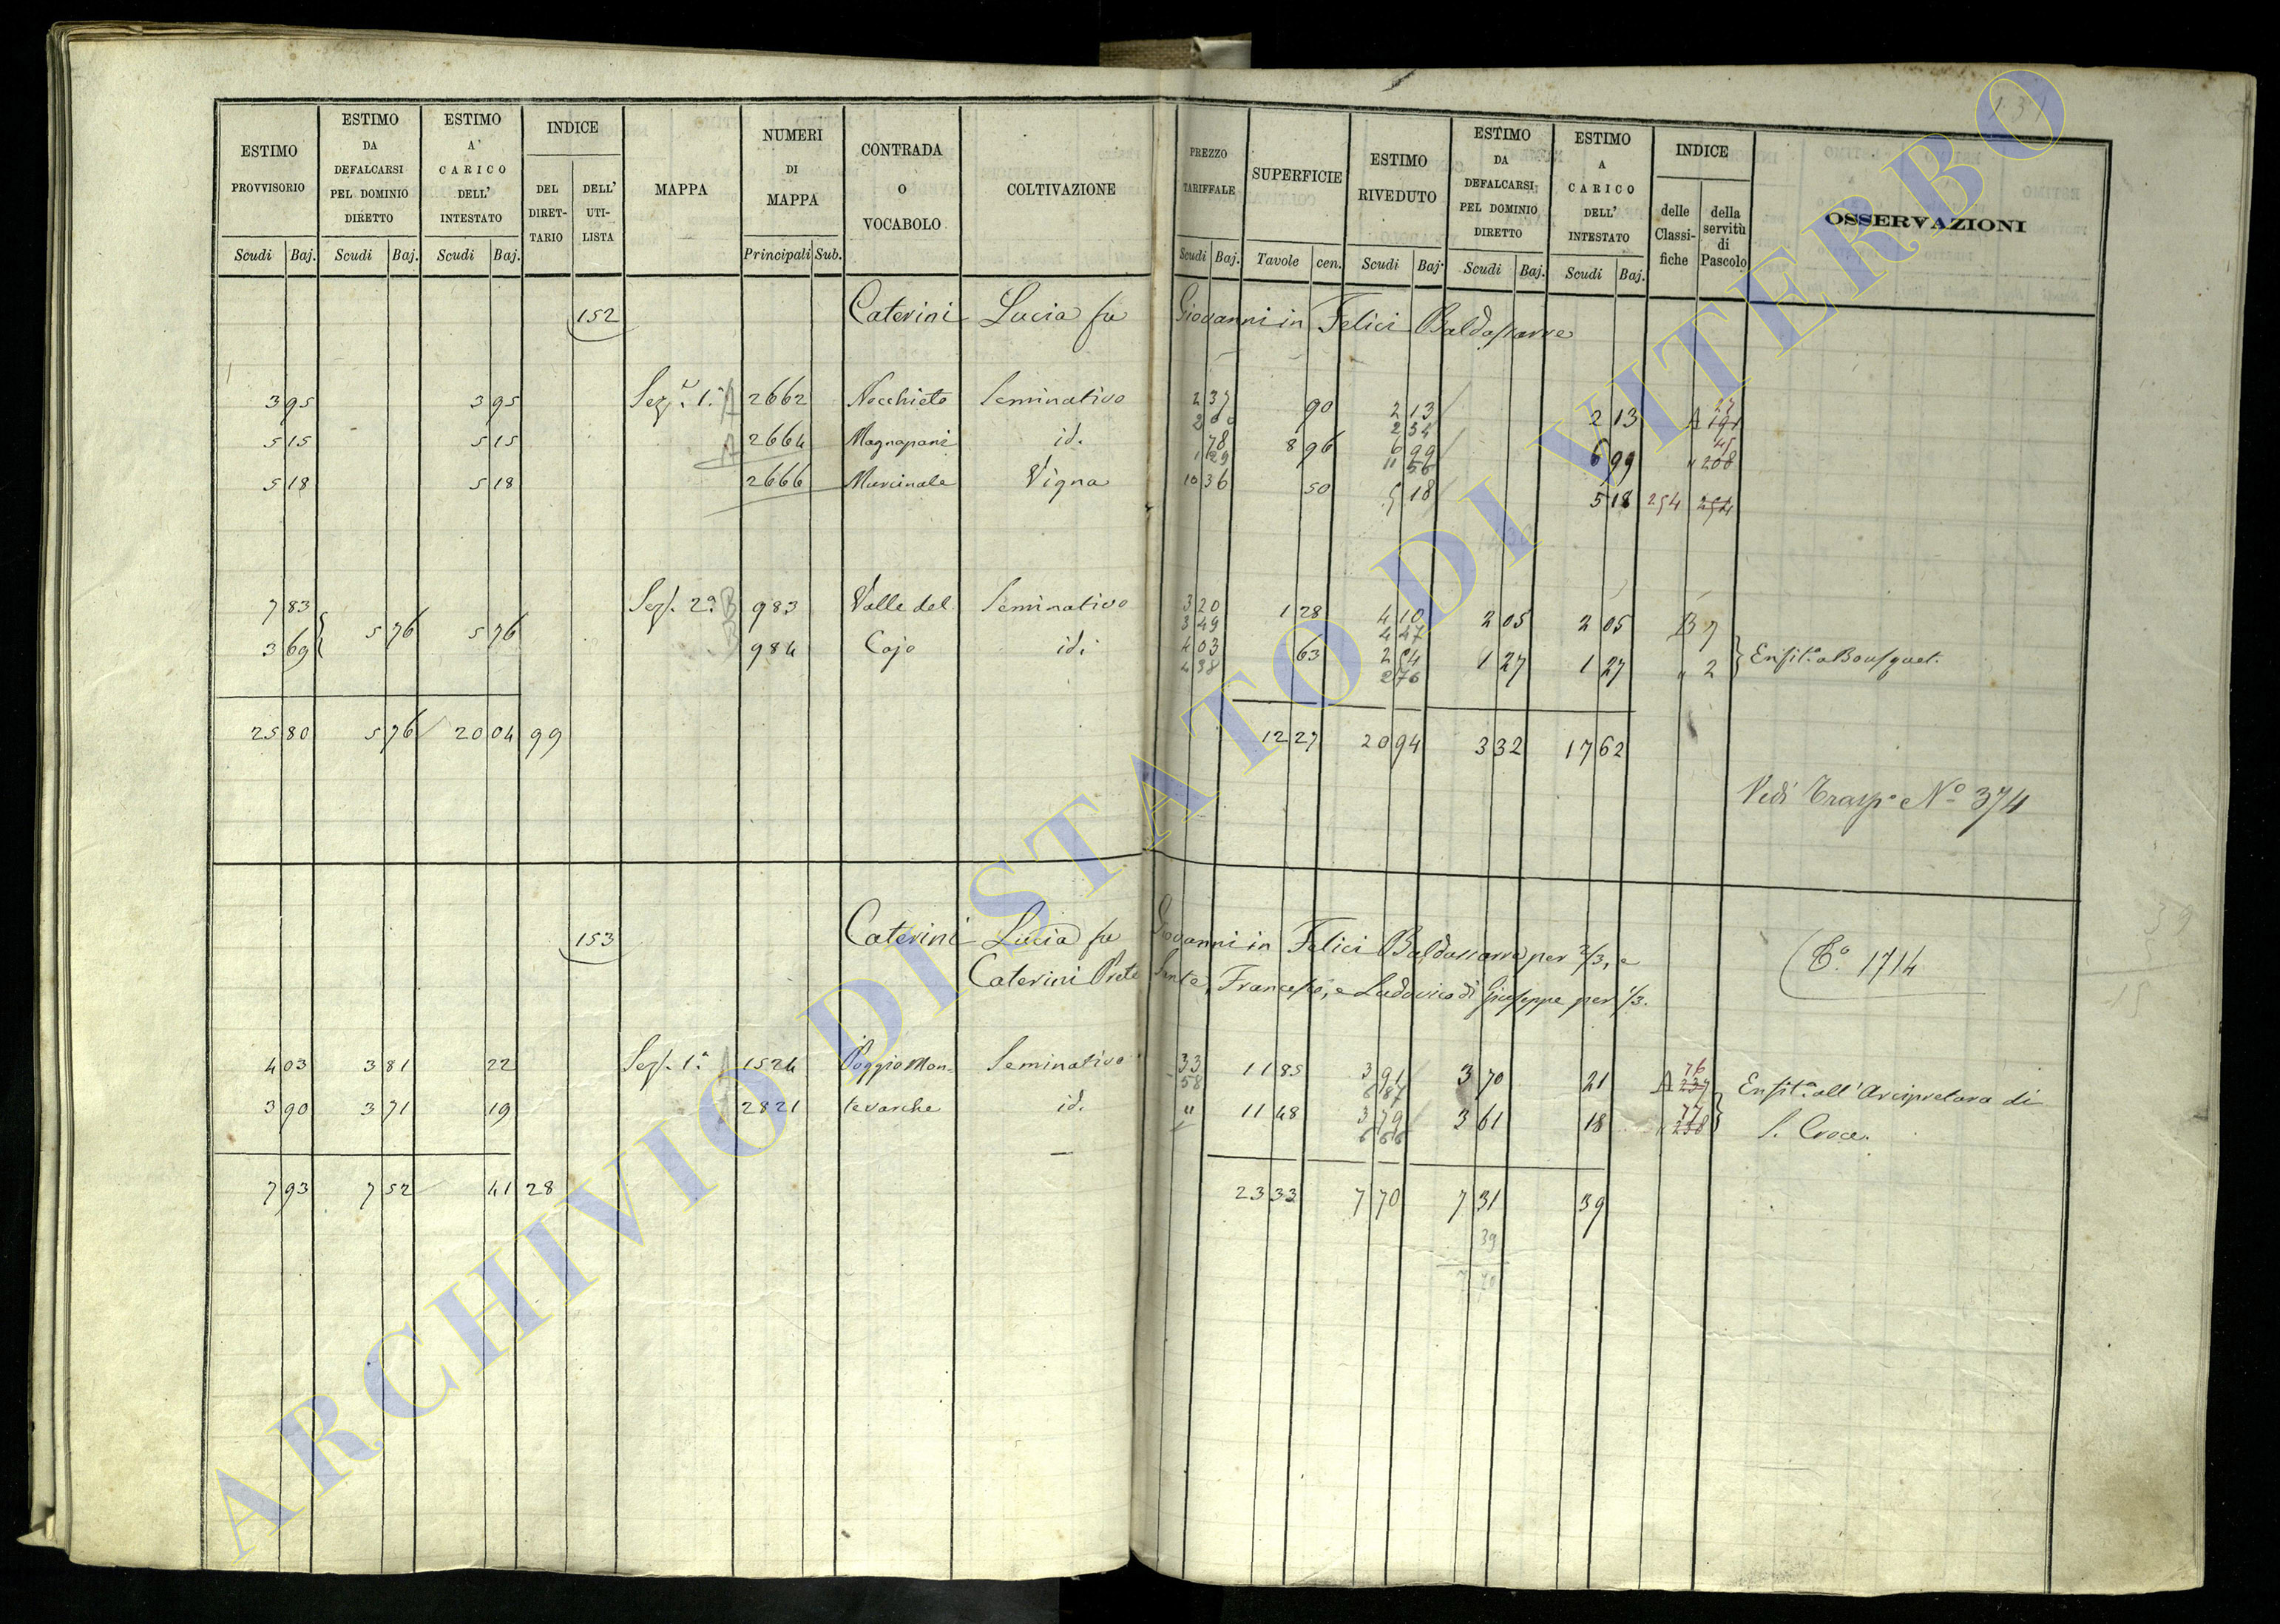 131
ESTIMO PROVVISORIO Scudi Baj.
ESTIMO DA DEFALCARSI PEL DOMINIO DIRETTO Scudi Baj.
ESTIMO A' CARICO DELL' INTESTATO Scudi Baj.
INDICE DEL DIRETTARIO DELL' UTILISTA
MAPPA
NUMERI DI MAPPA Principali Sub.
CONTRADA O VOCABOLO
COLTIVAZIONE
PREZZO TARIFFALE Scudi Baj.
SUPERFICIE Tavole cen.
ESTIMO RIVEDUTO Scudi Baj.
ESTIMO DA DEFALCARSI PEL DOMINIO DIRETTO Scudi Baj.
ESTIMO A CARICO DELL' INTESTATO Scudi Baj.
INDICE delle Classifiche della servitù di Pascolo
OSSERVAZIONI
152 Caterini Lucia fu Giovanni in Felici Baldassarre
3 95 3 95 Sez. 1.a A 2662 Nocchieto Seminativo 2 37 90 2 13 2 13 A 27 191
2 60 2 34
5 15 5 15 A 2664 Magnapani id. 78 8 96 6 99 6 99 " 45 208
1 29 11 56
5 18 5 18 2666 Murcinale Vigna 10 36 50 5 18 5 18 254 254
7 83 5 76 5 76 Sez. 2a B 983 Valle del Seminativo 3 20 1 28 4 10 2 05 2 05 B 7
3 49 4 47
3 69 B 984 Cajo id. 4 03 63 2 54 1 27 1 27 " 2 Enfit.a a Bousquet.
4 38 2 76
25 80 5 76 20 04 99 12 27 20 94 3 32 17 62
Vedi Trasp.o No 374
153 Caterini Lucia fu Giovanni in Felici Baldassarre per 2/3, e
Caterini Prete Sante, Francesco, e Ludovico di Giuseppe per 1/3.
T.o 1714
4 03 3 81 22 Sez. 1.a 1524 Poggio Mon- Seminativo 33 11 85 3 91 3 70 21 A 76 237 Enfit.a all'Arcipretura di
58 6 87
3 90 3 71 19 2821 tevarche id. " 11 48 3 79 3 61 18 " 77 238 S. Croce.
6 66
7 93 7 52 41 28 23 33 7 70 7 31 39
39
7 70
ARCHIVIO DI STATO DI VITERBO